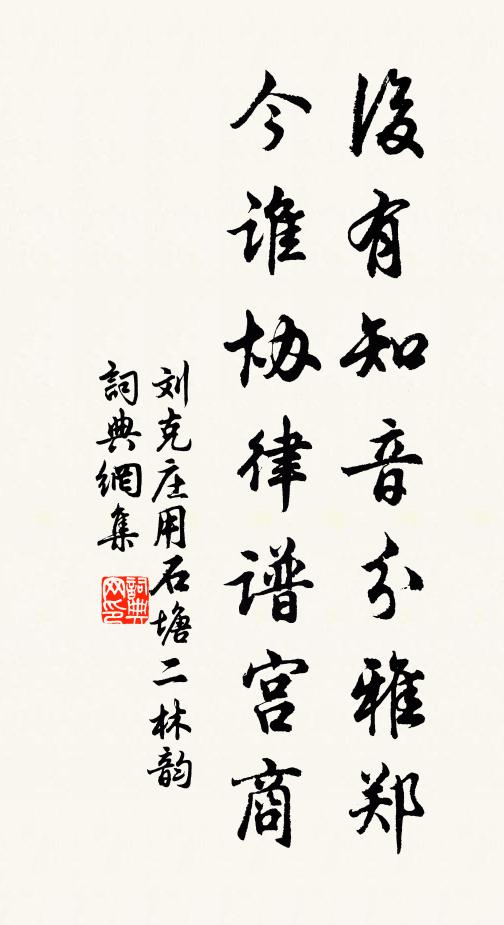 後有知音分雅郑
今谁协律谱宫商
刘克庄用石塘二林韵
詞典網集